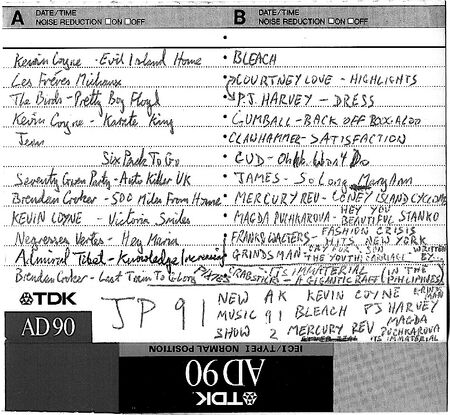 A DATE/TIME
NOISE REDUCTION □ON □OFF
Kevin Coyne - Evil Island Home
Les Frères
The Birds - Pretty Boy Floyd
Kevin Coyne - Karate King
Six Pack To Go
Seventy Gwen Party - Auto Killer UK
Brendan Croker - 500 Miles From Home
KEVIN COYNE - Victoria Smiles
Negresses Vertes - Hey Maria
Admiral Tibet - Knowledge
Brendan Croker - Last Train To
B DATE/TIME
NOISE REDUCTION □ON □OFF
BLEACH
COURTNEY LOVE - HIGHLIGHTS
PJ. HARVEY - DRESS
GUMBALL - BACK OFF
CLAWHAMMER - SATISFACTION
CUD - Ohhh Won't Do
JAMES - So Long Mary Ann
MERCURY REV - CONEY ISLAND CYCLONE
MAGDA PUCHKAROVA - HEY YOU BEAUTIFUL STANKO
FRANK & WALTERS - FASHION CRISIS HITS NEW YORK
GRINDSMAN - CRY FOR THE YOUTH WRITTEN BY...
PLATES - IT'S IMMATERIAL
CRABSTICK - A GIGANTIC RAFT (IN THE PHILIPPINES)
TDK
AD90
JP 91
NEW AK KEVIN COYNE GRINDS MAN
MUSIC 91 BLEACH PJ HARVEY
SHOW 2 MERCURY REV MAGDA PUCHKAROVA
ITS IMMATERIAL
IECI/TYPE I NORMAL POSITION
AD 90
TDK